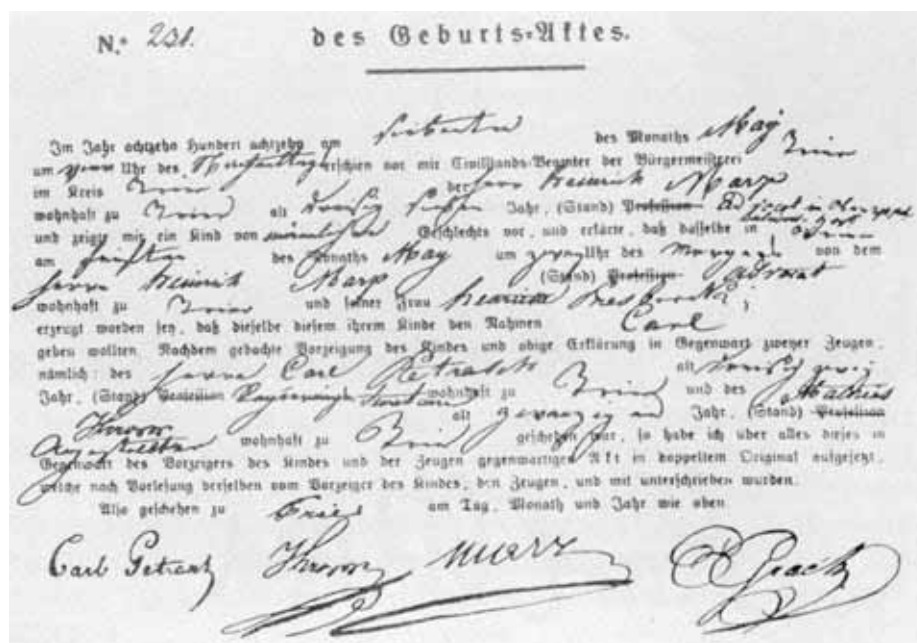 N.o 231. des Geburts-Aktes.
Im Jahr achtzehn Hundert achtzehn am siebenten des Monaths May
um vier Uhr des Nachmittags erschien vor mir Civilstands-Beamter der Bürgermeisterei Trier
im Kreis Trier der Herr Heinrich Marx
wohnhaft zu Trier alt dreisig sieben Jahr, (Stand) Profession Advocat
und zeigte mir ein Kind von männlichen Geschlechts vor, und erklärte, daß dasselbe in Trier
am fünften des Monaths May um zwey Uhr des Morgens von dem
Herrn Heinrich Marx (Stand) Profession Advocat
wohnhaft zu Trier und seiner Frau Henriette Presborck
erzeugt worden sey, daß dieselbe diesem ihrem Kinde den Nahmen Carl
geben wollten. Nachdem gedachte Vorzeigung des Kindes und obige Erklärung in Gegenwart zweyer Zeugen,
nämlich: des Herrn Carl Petrasch alt dreisig zwey
Jahr, (Stand) Profession wohnhaft zu Trier und des Mathias
Kropp alt zwanzig ein Jahr, (Stand) Profession
Angestellter wohnhaft zu Trier geschehen war, so habe ich über alles dieses in
Gegenwart des Vorzeigers des Kindes und der Zeugen gegenwärtigen Akt in doppeltem Original aufgesetzt,
welche nach Vorlesung derselben vom Vorzeiger des Kindes, den Zeugen, und mir unterschrieben wurden.
Also geschehen zu Trier am Tag, Monath und Jahr wie oben.
Carl Petrasch Kropp Marx E Grach